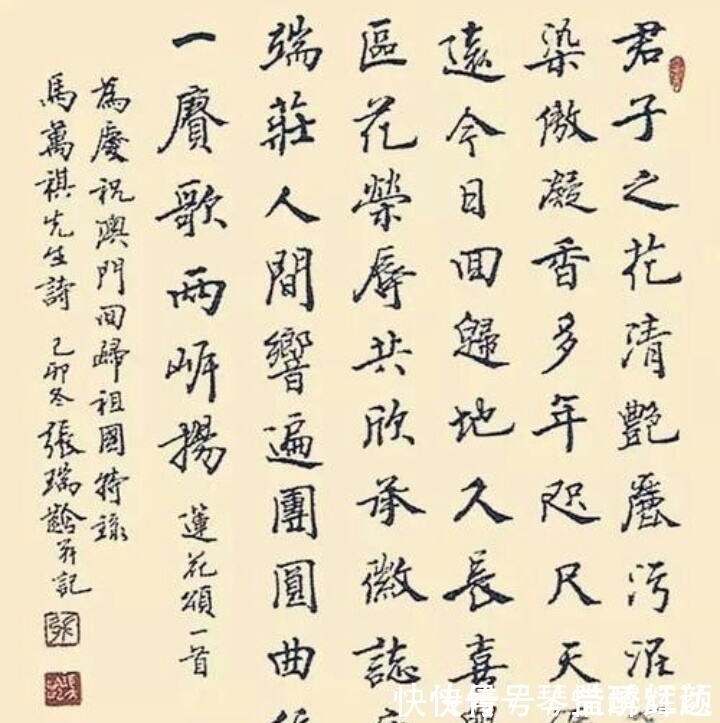 君子之花清艷麗污泥
染傲凝香多年咫尺天
遠今日回歸地久長喜
區花榮辱共欣承徽誌
端莊人間響遍團圓曲
一賡歌兩岸揚 蓮花頌一首
為慶祝澳門回歸祖國特錄
馬萬祺先生詩 己卯冬張瑞齡并記